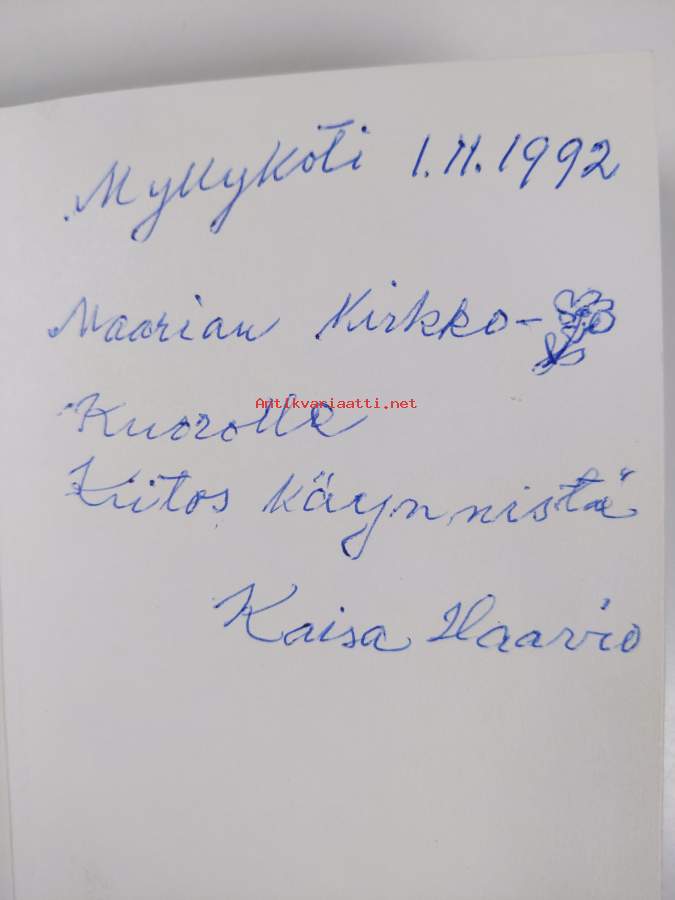 Myllykoti 1.11.1992
Maarian Kirkko-
Antikvariaatti.net
Kuorolle
Kiitos käynnistä
Kaisa Haavio